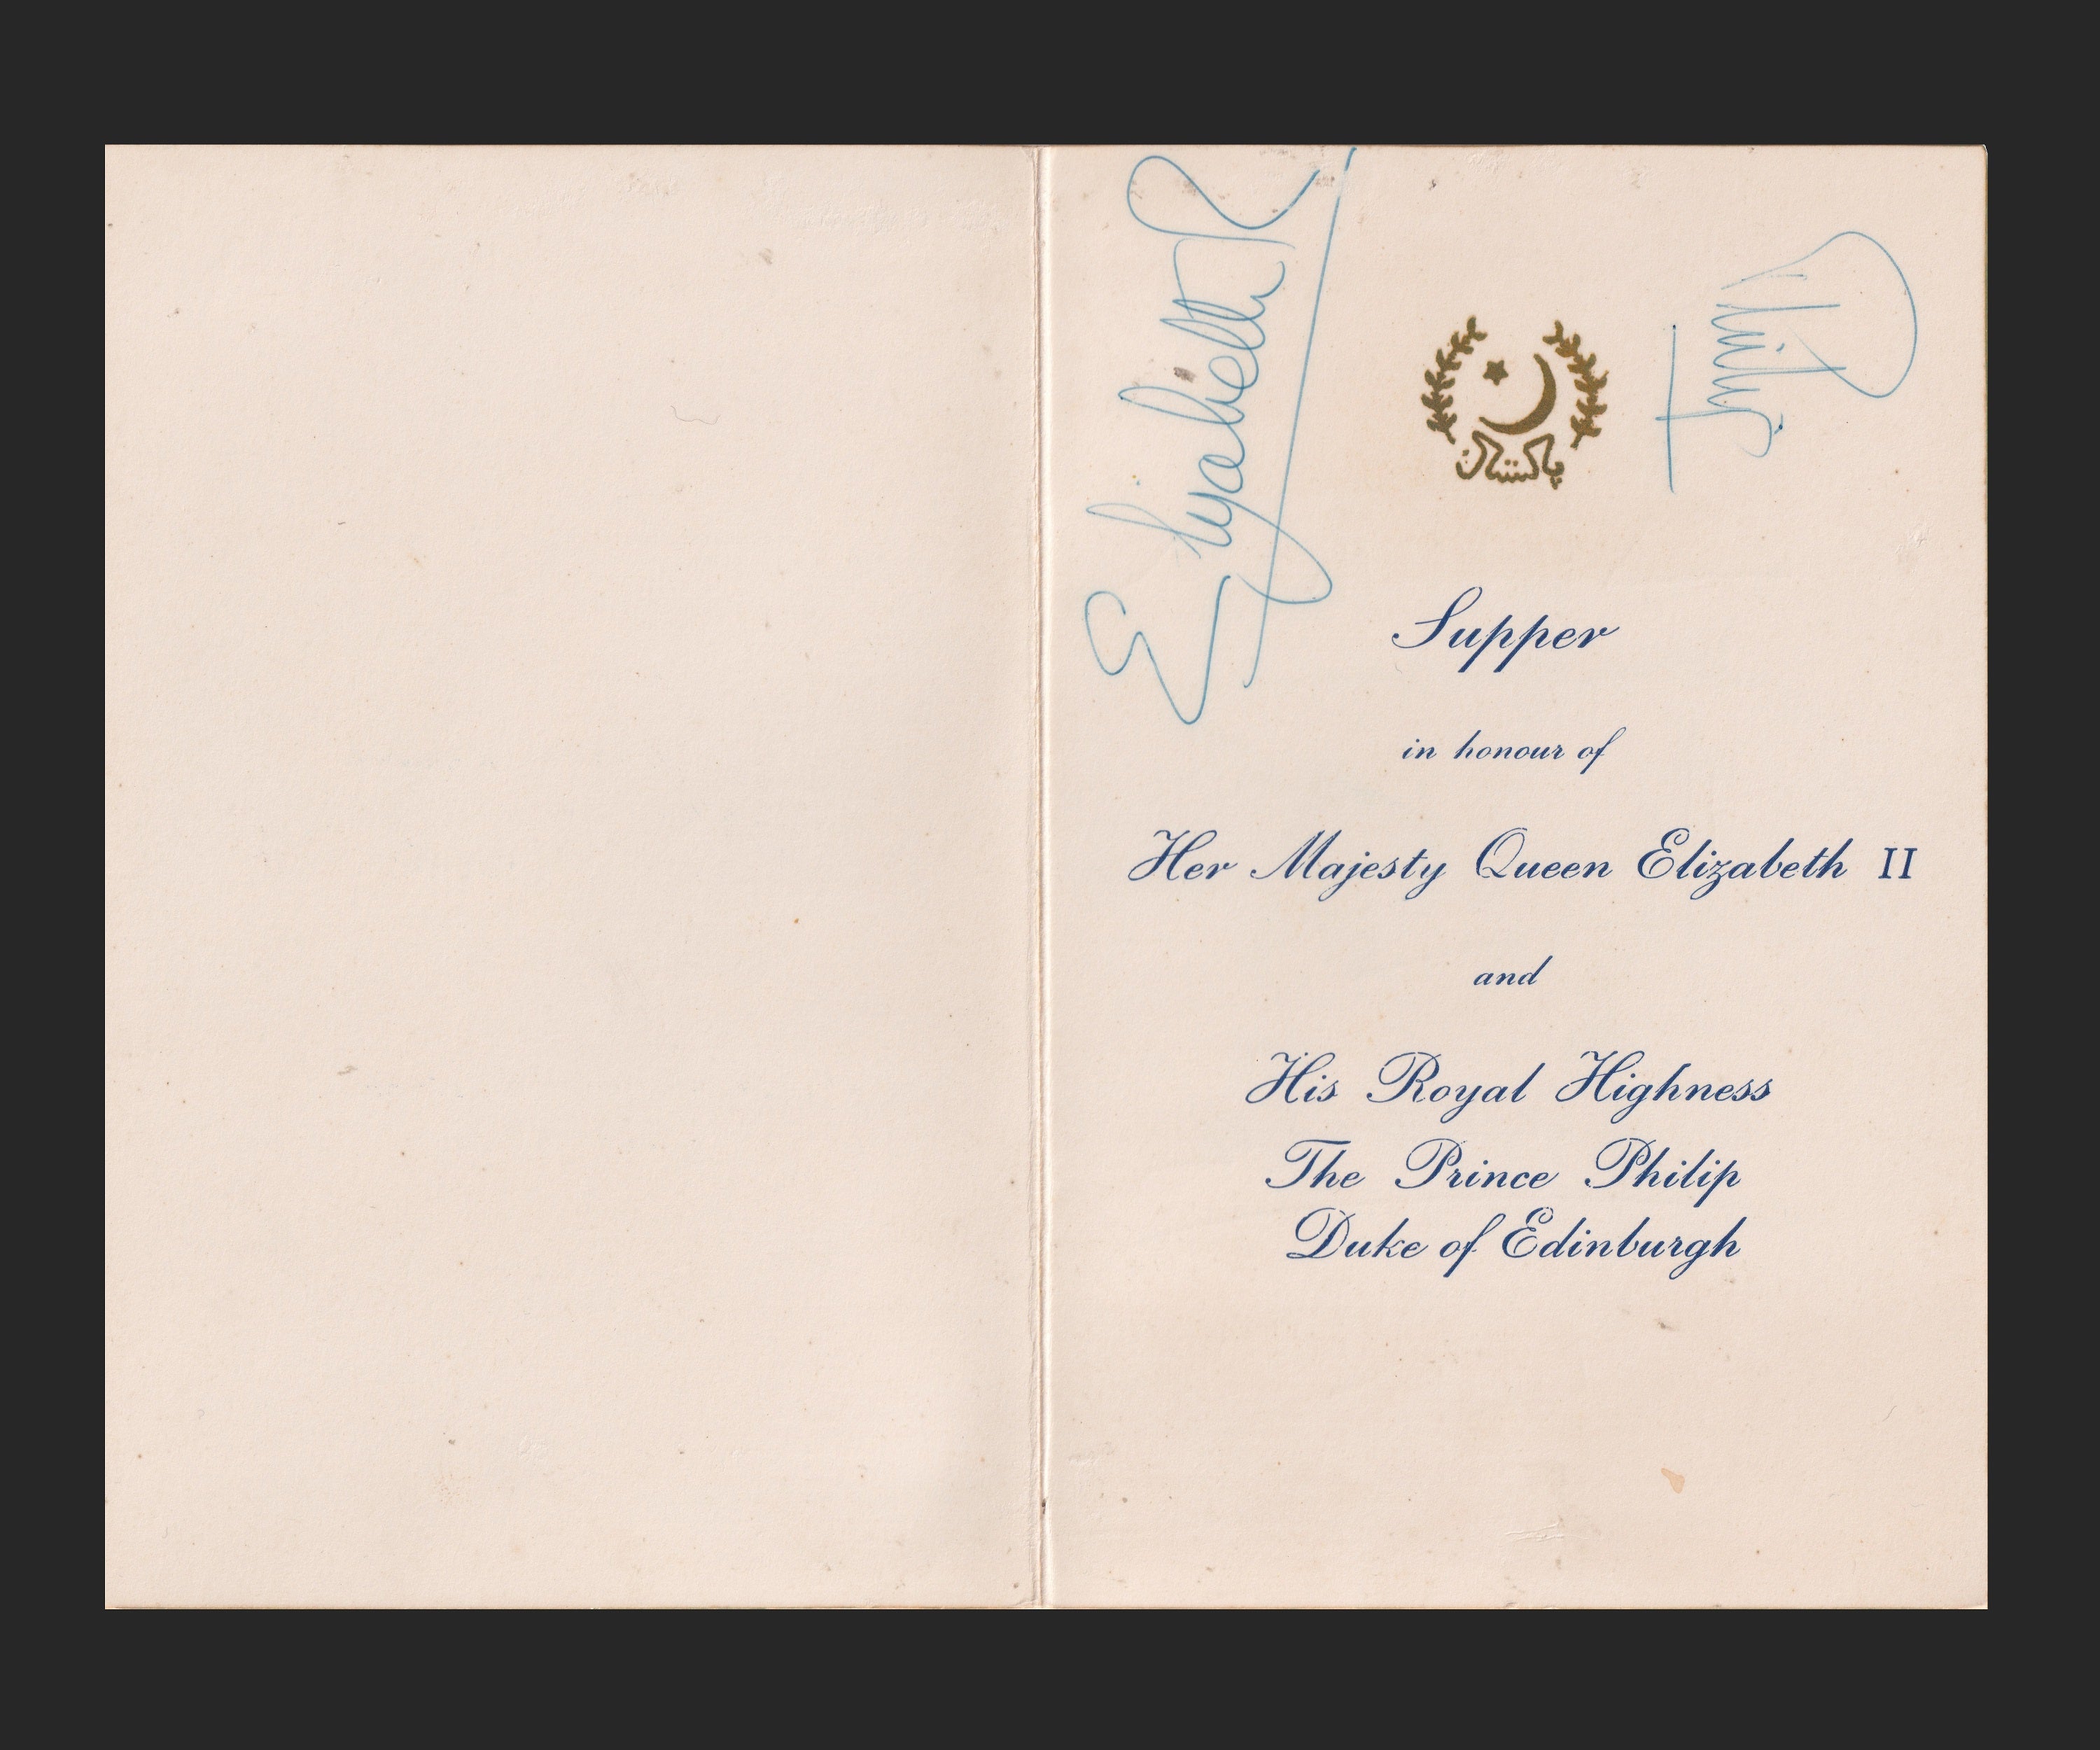 Elizabeth R
Philip
پاکستان
Supper
in honour of
Her Majesty Queen Elizabeth II
and
His Royal Highness
The Prince Philip
Duke of Edinburgh